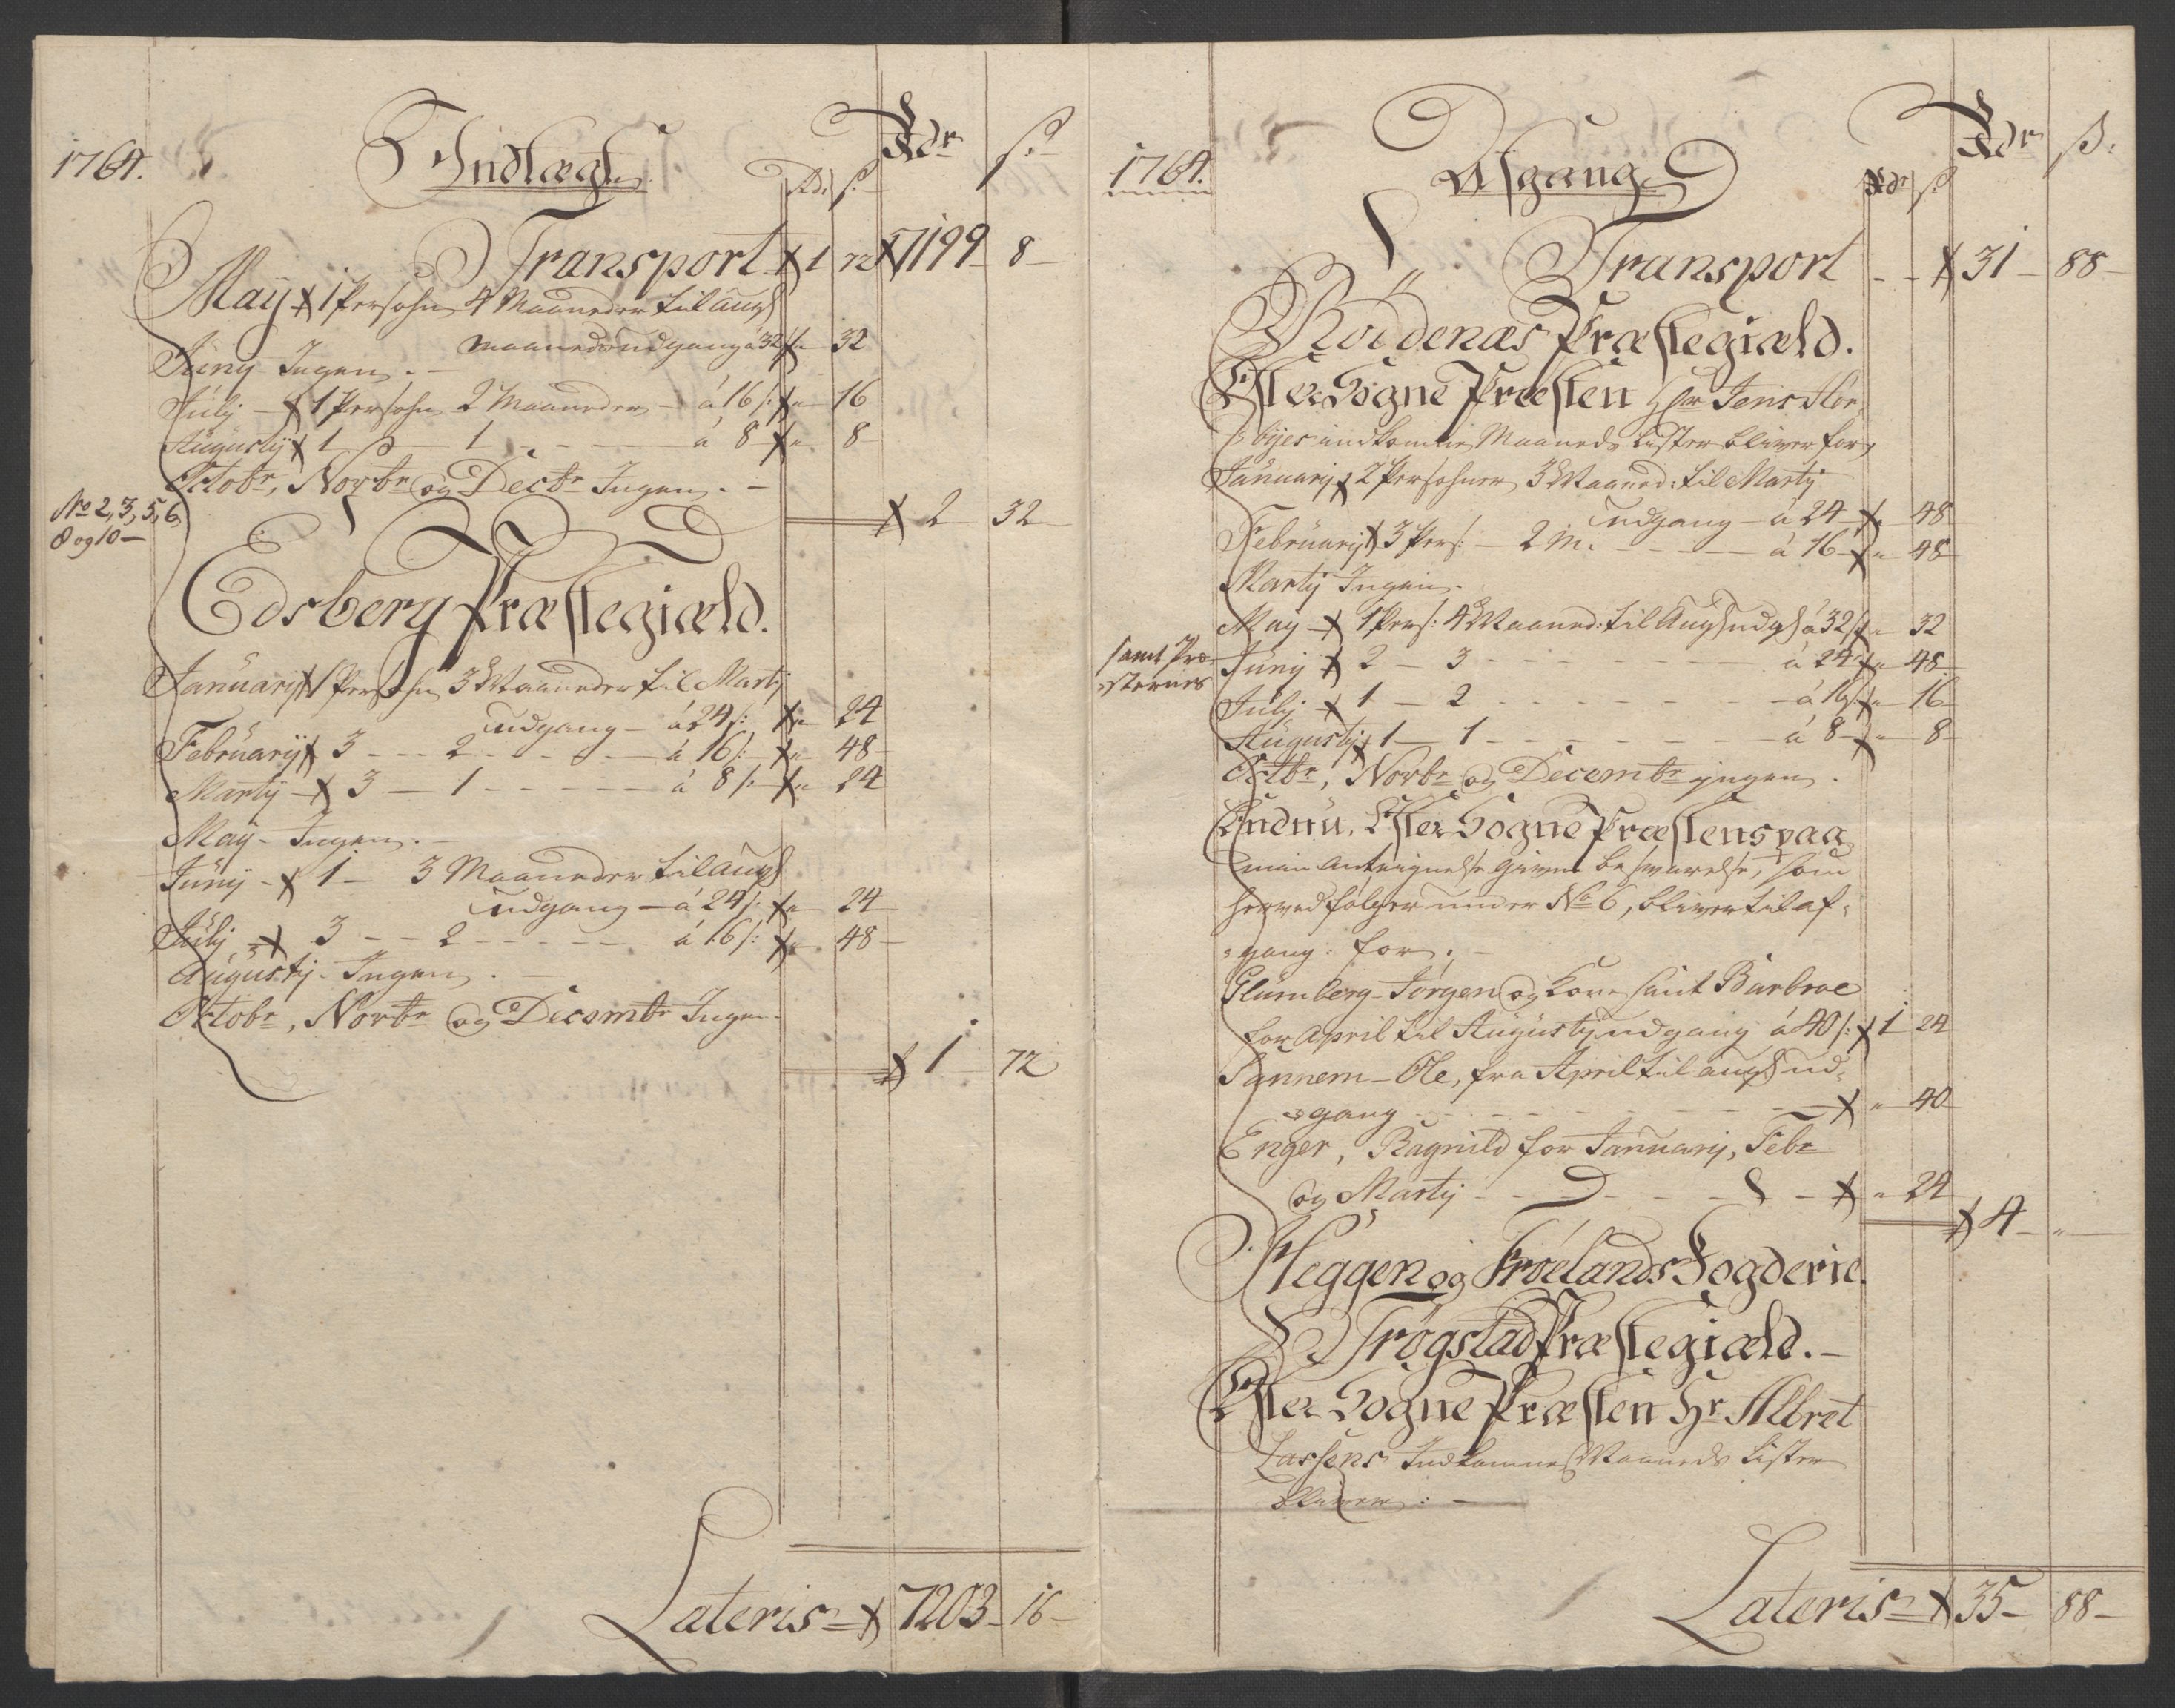 1764.
Indlægt
Rdr
ß
Rd. ß
Transport 1 72 7199 8
May 1 Persohn 4 Maaneder til aug
maaneds udgang á 32 ß 32
Juny Ingen.
Julj 1 Persohn 2 Maaneder á 16 ß 16
Augusty 1 1 á 8 8
Octobr, Novbr og Decbr Ingen.
2 32
No 2, 3, 5, 6,
8 og 10
Edsberg Præstegiæld.
January 1 Persohn 3 Maaneder til Marty
udgang á 24 ß: 24
February 3 2 á 16 ß: 48
Marty 3 1 á 8 ß: 24
May Ingen.
Juny 1 3 Maaneder til aug
udgang á 24 ß: 24
Julj 3 2 á 16 ß: 48
Augusty Ingen.
Octobr, Novbr og Decembr Ingen.
1 72
Lateris 7203 16
1764.
Afgang
Rdr ß:
Rdr ß
Transport 31 88
Rødenæs Præstegiæld.
Efter Sogne Præsten Hr Jens
indkomne Maaneds Lister bliver for
January 2 Persohner 3 Maaned: til Marty
udgang á 24 48
February 3 Pers: 2 M. á 16 48
Marty Ingen.
May 1 Pers: 4 Maaned: til Aug udg á 32 ß 32
samt Præ-
sternes
Juny 2 3 á 24 48
Julj 1 2 á 16 ß 16
Augusty 1 1 á 8 8
Octbr, Novbr og Decembr jngen.
Endnu, Efter Sogne Præstens paa
min Antegnelse givne besvarelse, som
herved følger under No 6, bliver til af-
gang: for.
Glumberg Jørgen og Kone samt Barbroe
for April til Augusty udgang á 40 ß: 1 24
Sannem Ole, fra April til aug ud-
gang 40
Enger, Ragnild for January, Febr
og Marty 24
4
Heggen og Frølands Fogderie.
Trøgstad Præstegiæld.
Efter Sogne Præsten Hr Albret
Lassens Indkomne Maaneds Lister
bliver:
Lateris 35 88